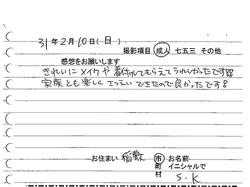 31年2月10日(日)
撮影項目 成人 七五三 その他
感想をお願いします
きれいにメイクや着付してもらえてうれしかったです
家族とも楽しくさつえいできたので良かったです!
お住まい 稲敷 市 町 村 お名前 イニシャルで S.K